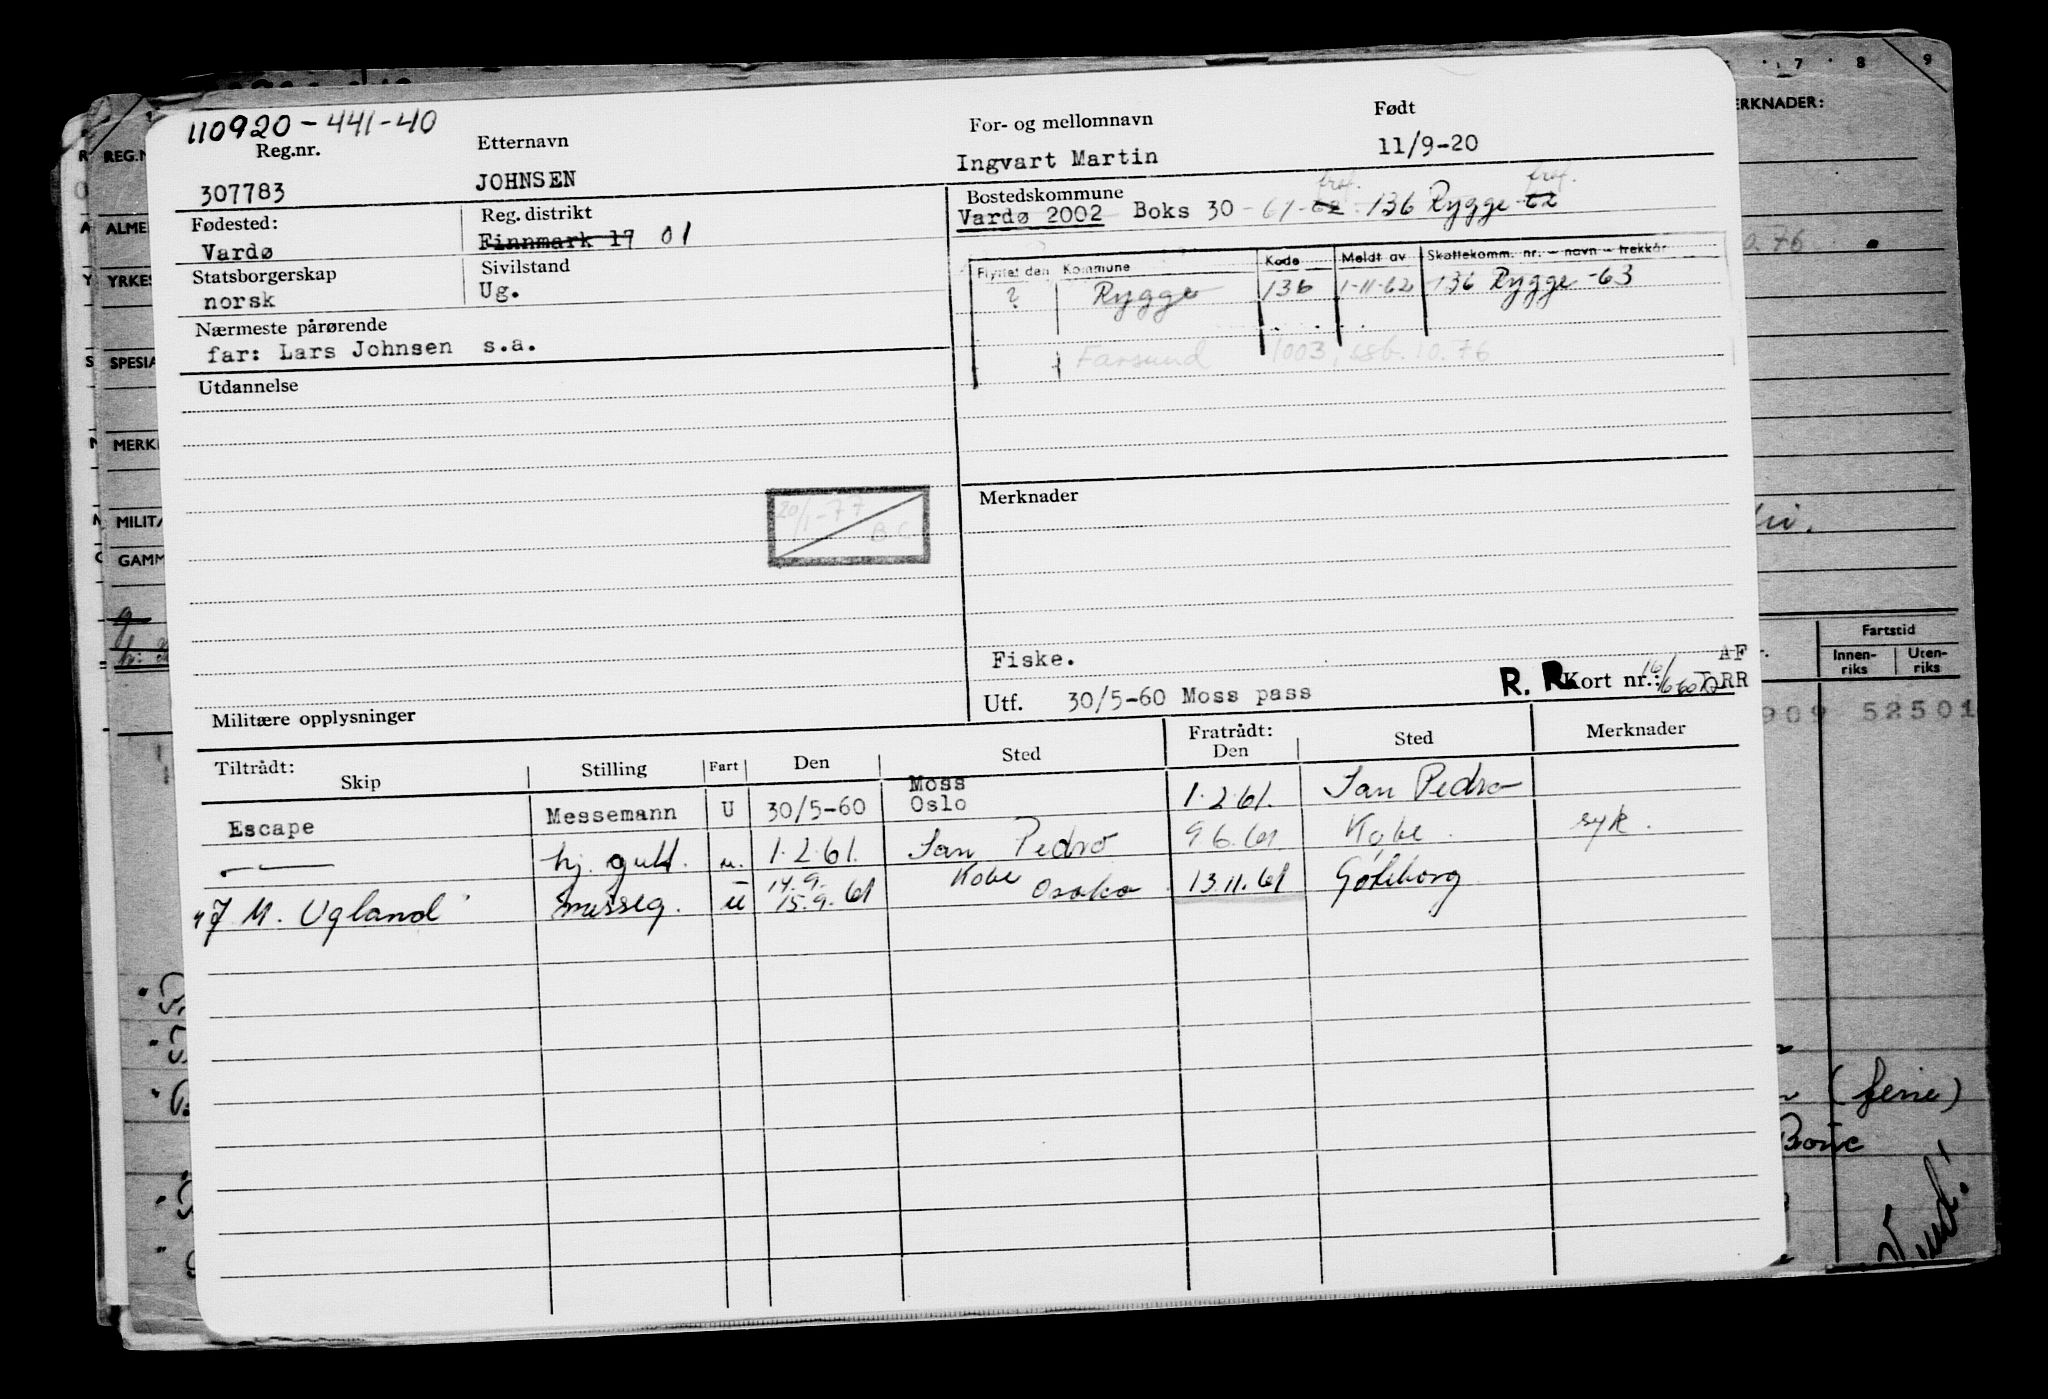 7 8 9
REG.N
ERKNADER:
110920-441-40
Reg.nr. Etternavn For- og mellomnavn Født
307783 JOHNSEN Ingvart Martin 11/9-20
Fødested: Reg. distrikt Bostedskommune
Vardø Finnmark 17 01 Vardø 2002 Boks 30 - 61 - 62 - 136 Rygge 62
Statsborgerskap Sivilstand
norsk Ug.
Flyttet den Kommune Kode Meldt av Skattekomm. nr. - navn - trekkår
? Rygge 136 1-11-62 136 Rygge -63
Farsund 1003, ssb. 10.76
Nærmeste pårørende
far: Lars Johnsen s.a.
Utdannelse
20/1-77
B.C.
Merknader
Fiske.
Utf. 30/5-60 Moss pass R. R. Kort nr.: AF
RR
Militære opplysninger
ALME
YRKES
SPESIA
MERK
MILITÆ
GAMM
0.76
Fartstid
Innen-
riks
Uten-
riks
909 52501
Tiltrådt: Fratrådt:
Skip Stilling Fart Den Sted Den Sted Merknader
Escape Messemann U 30/5-60 Moss
Oslo 1.2.61. San Pedro
— — hj. gutt. u. 1.2.61. San Pedro 9.6.61 Kobe. syk.
J. M. Ugland messeg. u 14.9.
15.9.61 Kobe Osaka 13.11.61 Gøteborg
(ferie)